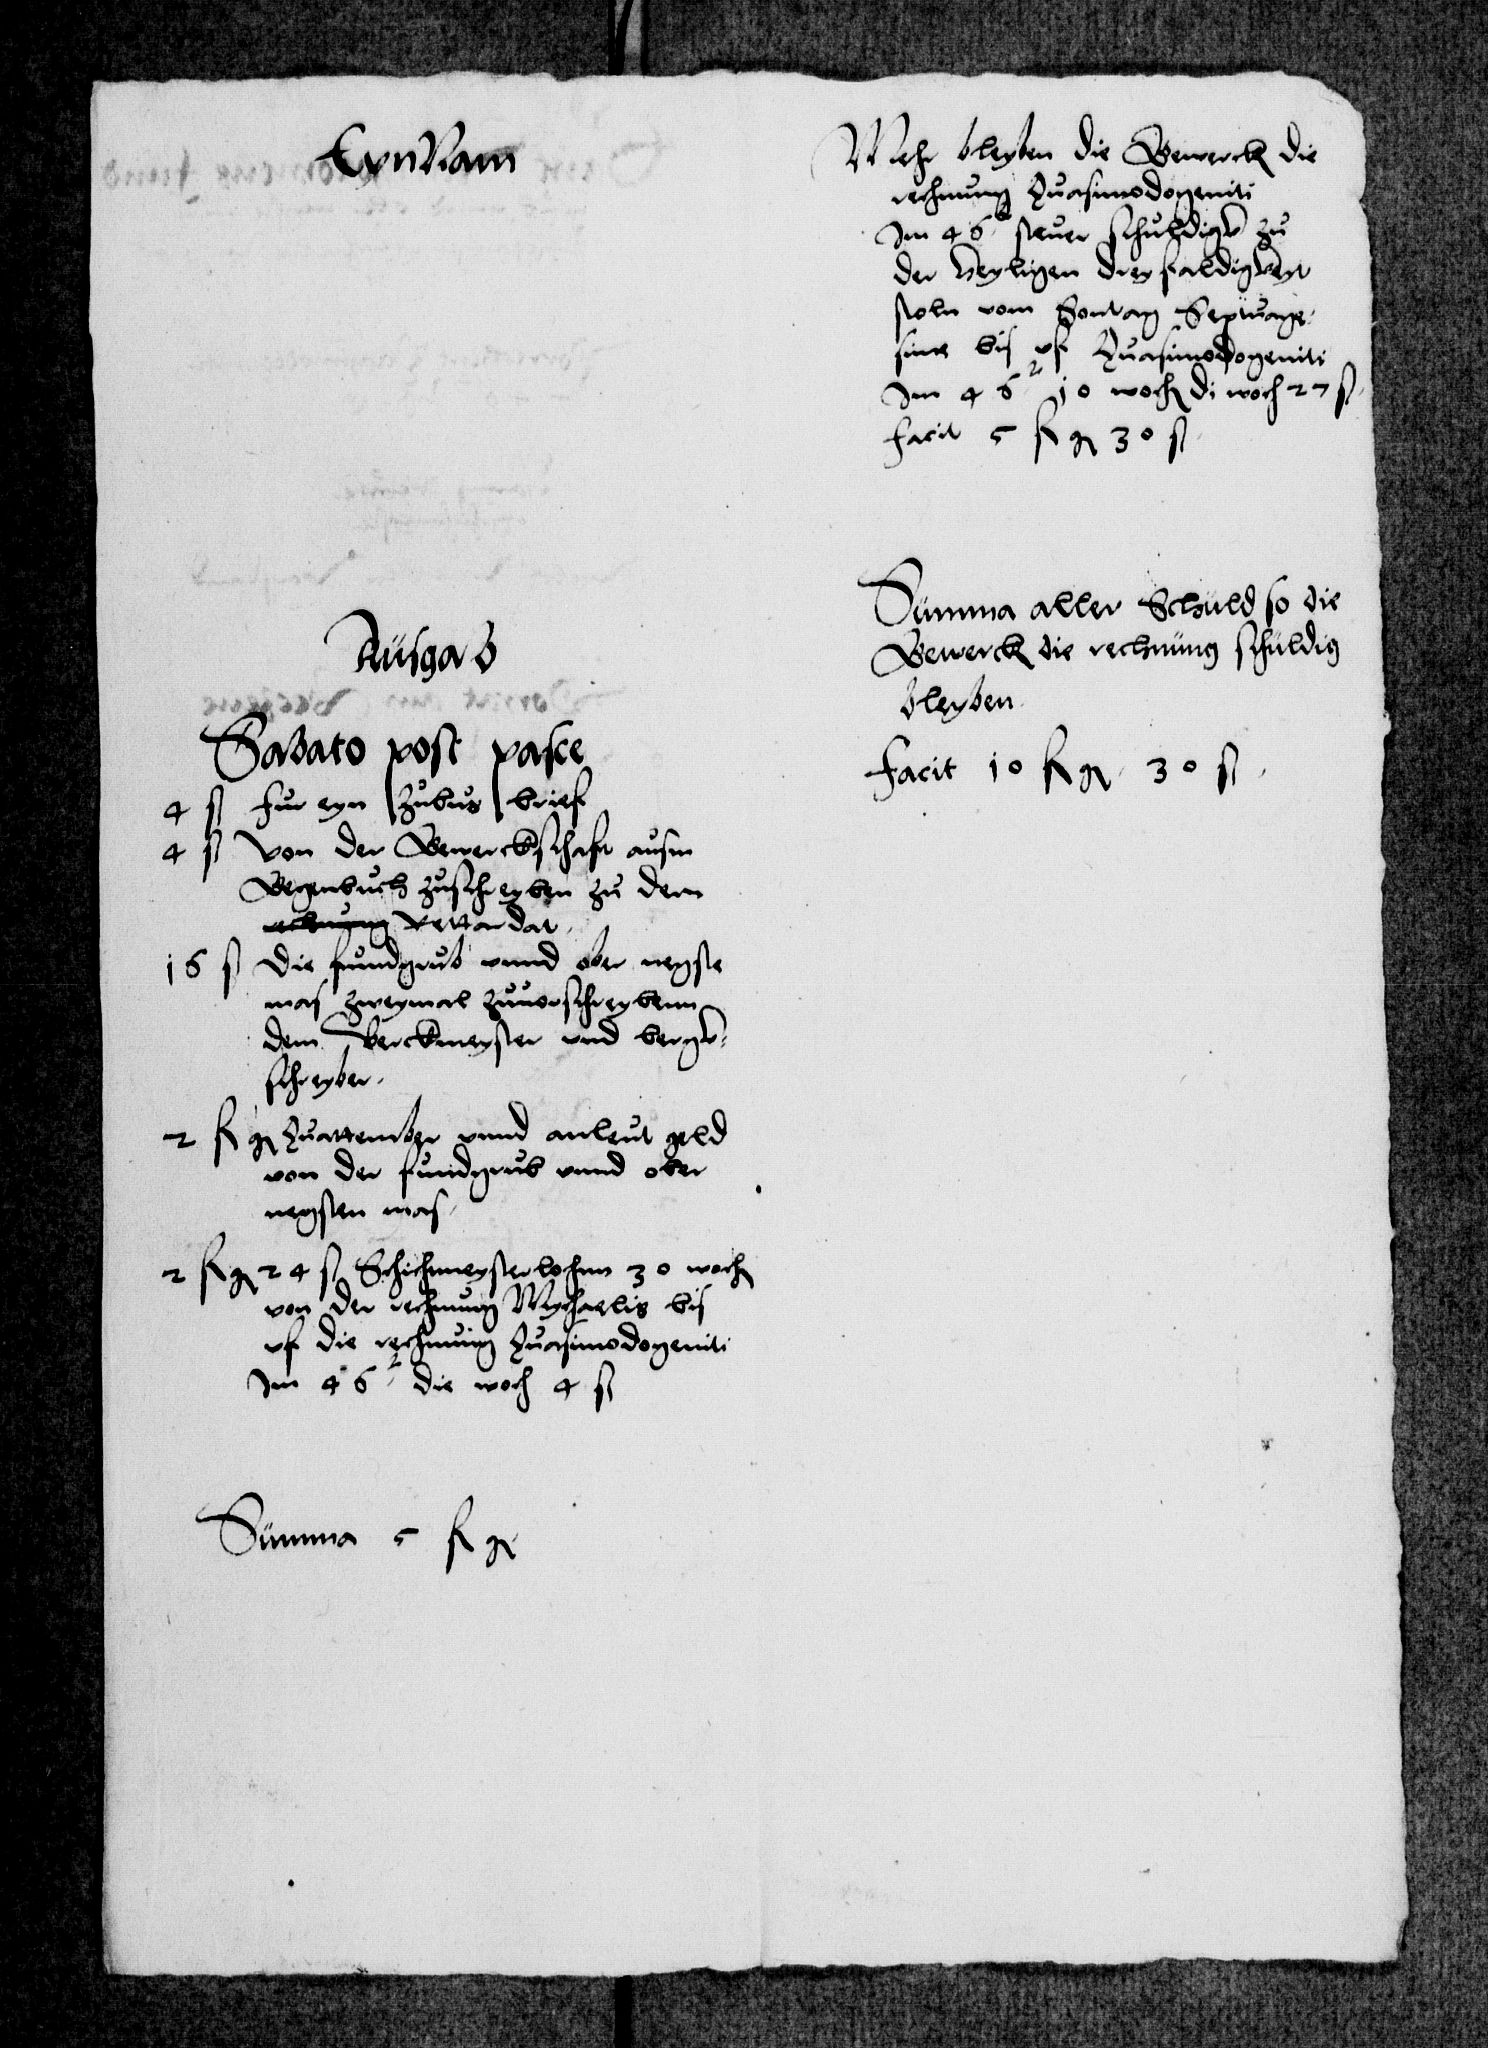 Eynnam
Ausgab
Sabato post pasce
4 ß fur eyn zubus brief
4 ß von der Gewerckschaft ausm
Gegenbuch zuschreyben zu dem
rechnung Rettardat.
16 ß die fundgrub unnd ober negste
mas zweymal zuvorschreybenn
dem Berckmeyster und bergk-
schreyber.
2 fl gr Quattember unnd anleut geld
von der fundgrub unnd ober
negsten mas.
2 fl gr 24 ß Schichmeysterlohnn 30 woch
von der rechnung Mychaelis bis
uf die rechnung Quasimodogeniti
Im 46 die woch 4 ß
Summa 5 fl gr
Mehr bleyben die Gewercken die
rechnung Quasimodogeniti
Im 46 steuer schuldigk zu
der heyligen dreyfaldigkeyt
stoln vom Sontag Septuage-
sime bis uf Quasimodogeniti
Im 46 10 woch di woch 27 ß.
facit 5 fl gr 30 ß.
Summa aller Schuld so die
Gewercken die rechnung schuldig
bleyben.
facit 10 fl gr. 30 ß.